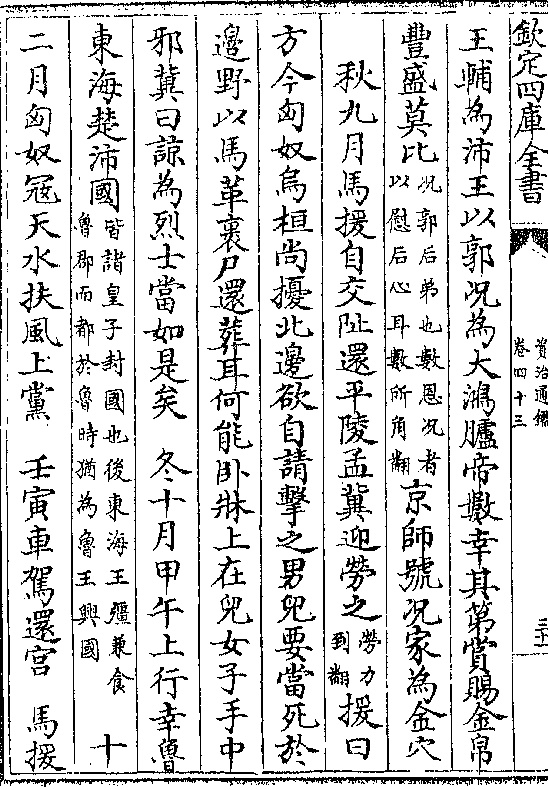 欽定四庫全書
資治通鑑
卷四十三
三十一
王輔為沛王以郭况為大鴻臚帝數幸其第賞賜金帛
豐盛莫比况郭后弟也數恩况者以慰后心耳數所角翻京師號况家為金穴
秋九月馬援自交阯還平陵孟冀迎勞之勞力到翻援曰
方今匈奴烏桓尚擾北邊欲自請擊之男兒要當死於
邊野以馬革裹尸還葬耳何能卧牀上在兒女子手中
邪冀曰諒為烈士當如是矣 冬十月甲午上行幸魯
東海楚沛國皆諸皇子封國也後東海王彊兼食魯郡而都於魯時猶為魯王興國 十
二月匈奴冦天水扶風上黨 壬寅車駕還宫 馬援